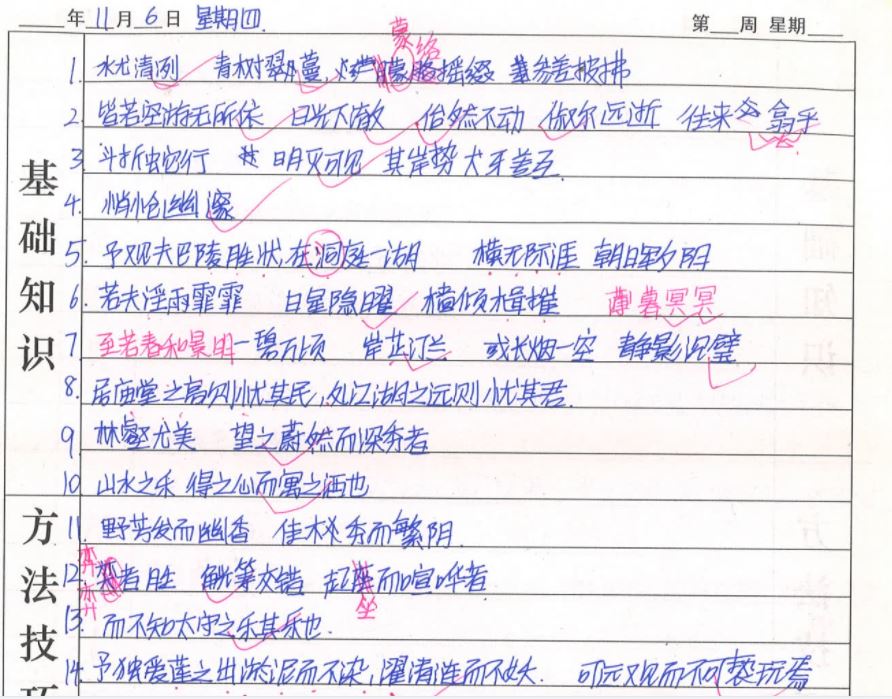 ___年 11月 6日 星期四 第___周 星期___
蒙络
1. 水尤清冽 青树翠蔓, 摇缀 参差披拂
2. 皆若空游无所依 日光下澈 佁然不动 俶尔远逝 往来 翕乎
3. 斗折蛇行 明灭可见 其岸势犬牙差互.
4. 悄怆幽邃
5. 予观夫巴陵胜状,在洞庭一湖 横无际涯 朝晖夕阴
6. 若夫淫雨霏霏 日星隐曜 樯倾楫摧 薄暮冥冥
7 至若春和景明 一碧万顷 岸芷汀兰 或长烟一空 静影沉璧
8. 居庙堂之高则忧其民,处江湖之远则忧其君.
9 林壑尤美 望之蔚然而深秀者
10 山水之乐 得之心而寓之酒也
11. 野芳发而幽香 佳木秀而繁阴.
弈
12. 者胜 觥筹交错 起座而喧哗者
弈 坐
13. 而不知太守之乐其乐也.
14. 予独爱莲之出淤泥而不染,濯清涟而不妖. 可远观而不可亵玩焉
基础知识
方法技巧